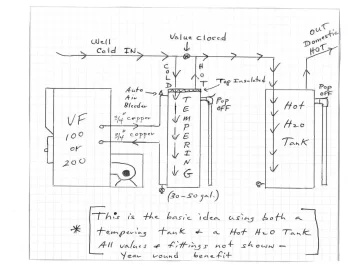 Well
Cold IN
Valve Closed
OUT
Domestic
HOT
COLD
HOT
Top Insulated
Auto
Air
Bleeder
Pop
OFF
Pop
OFF
VF
100
or
200
3/4" copper
3/4" copper
TEMPERING
Hot
H2O
Tank
(30-50 gal.)
* This is the basic idea using both a
tempering tank & a Hot H2O Tank
All valves & fittings not shown -
Year round benefit